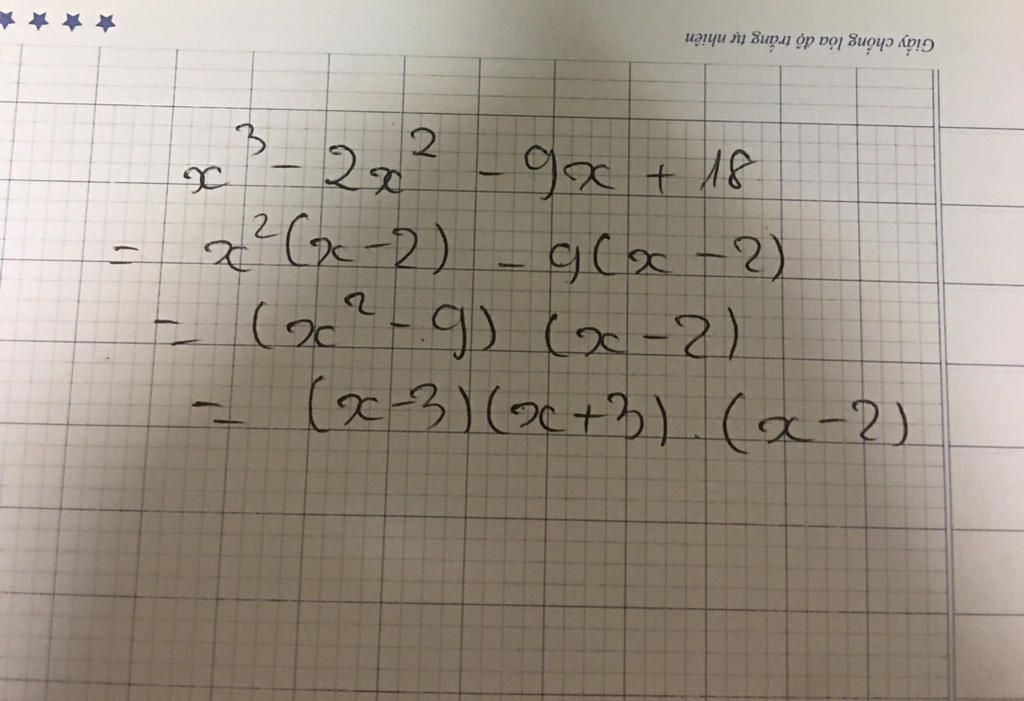 Giấy chống lóa độ trắng tự nhiên
x³ - 2x² - 9x + 18
= x²(x - 2) - 9(x - 2)
= (x² - 9) (x - 2)
= (x - 3)(x + 3) . (x - 2)